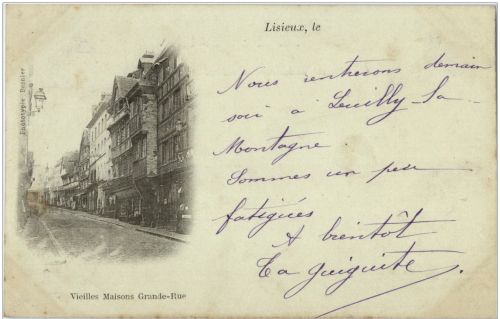 Lisieux, le
Phototypie Bunnier
Nous rentrerons demain
soir à Leuilly-la-
Montagne
Sommes un peu
fatiguées
A bientôt
Ta Guiguite.
Vieilles Maisons Grande-Rue